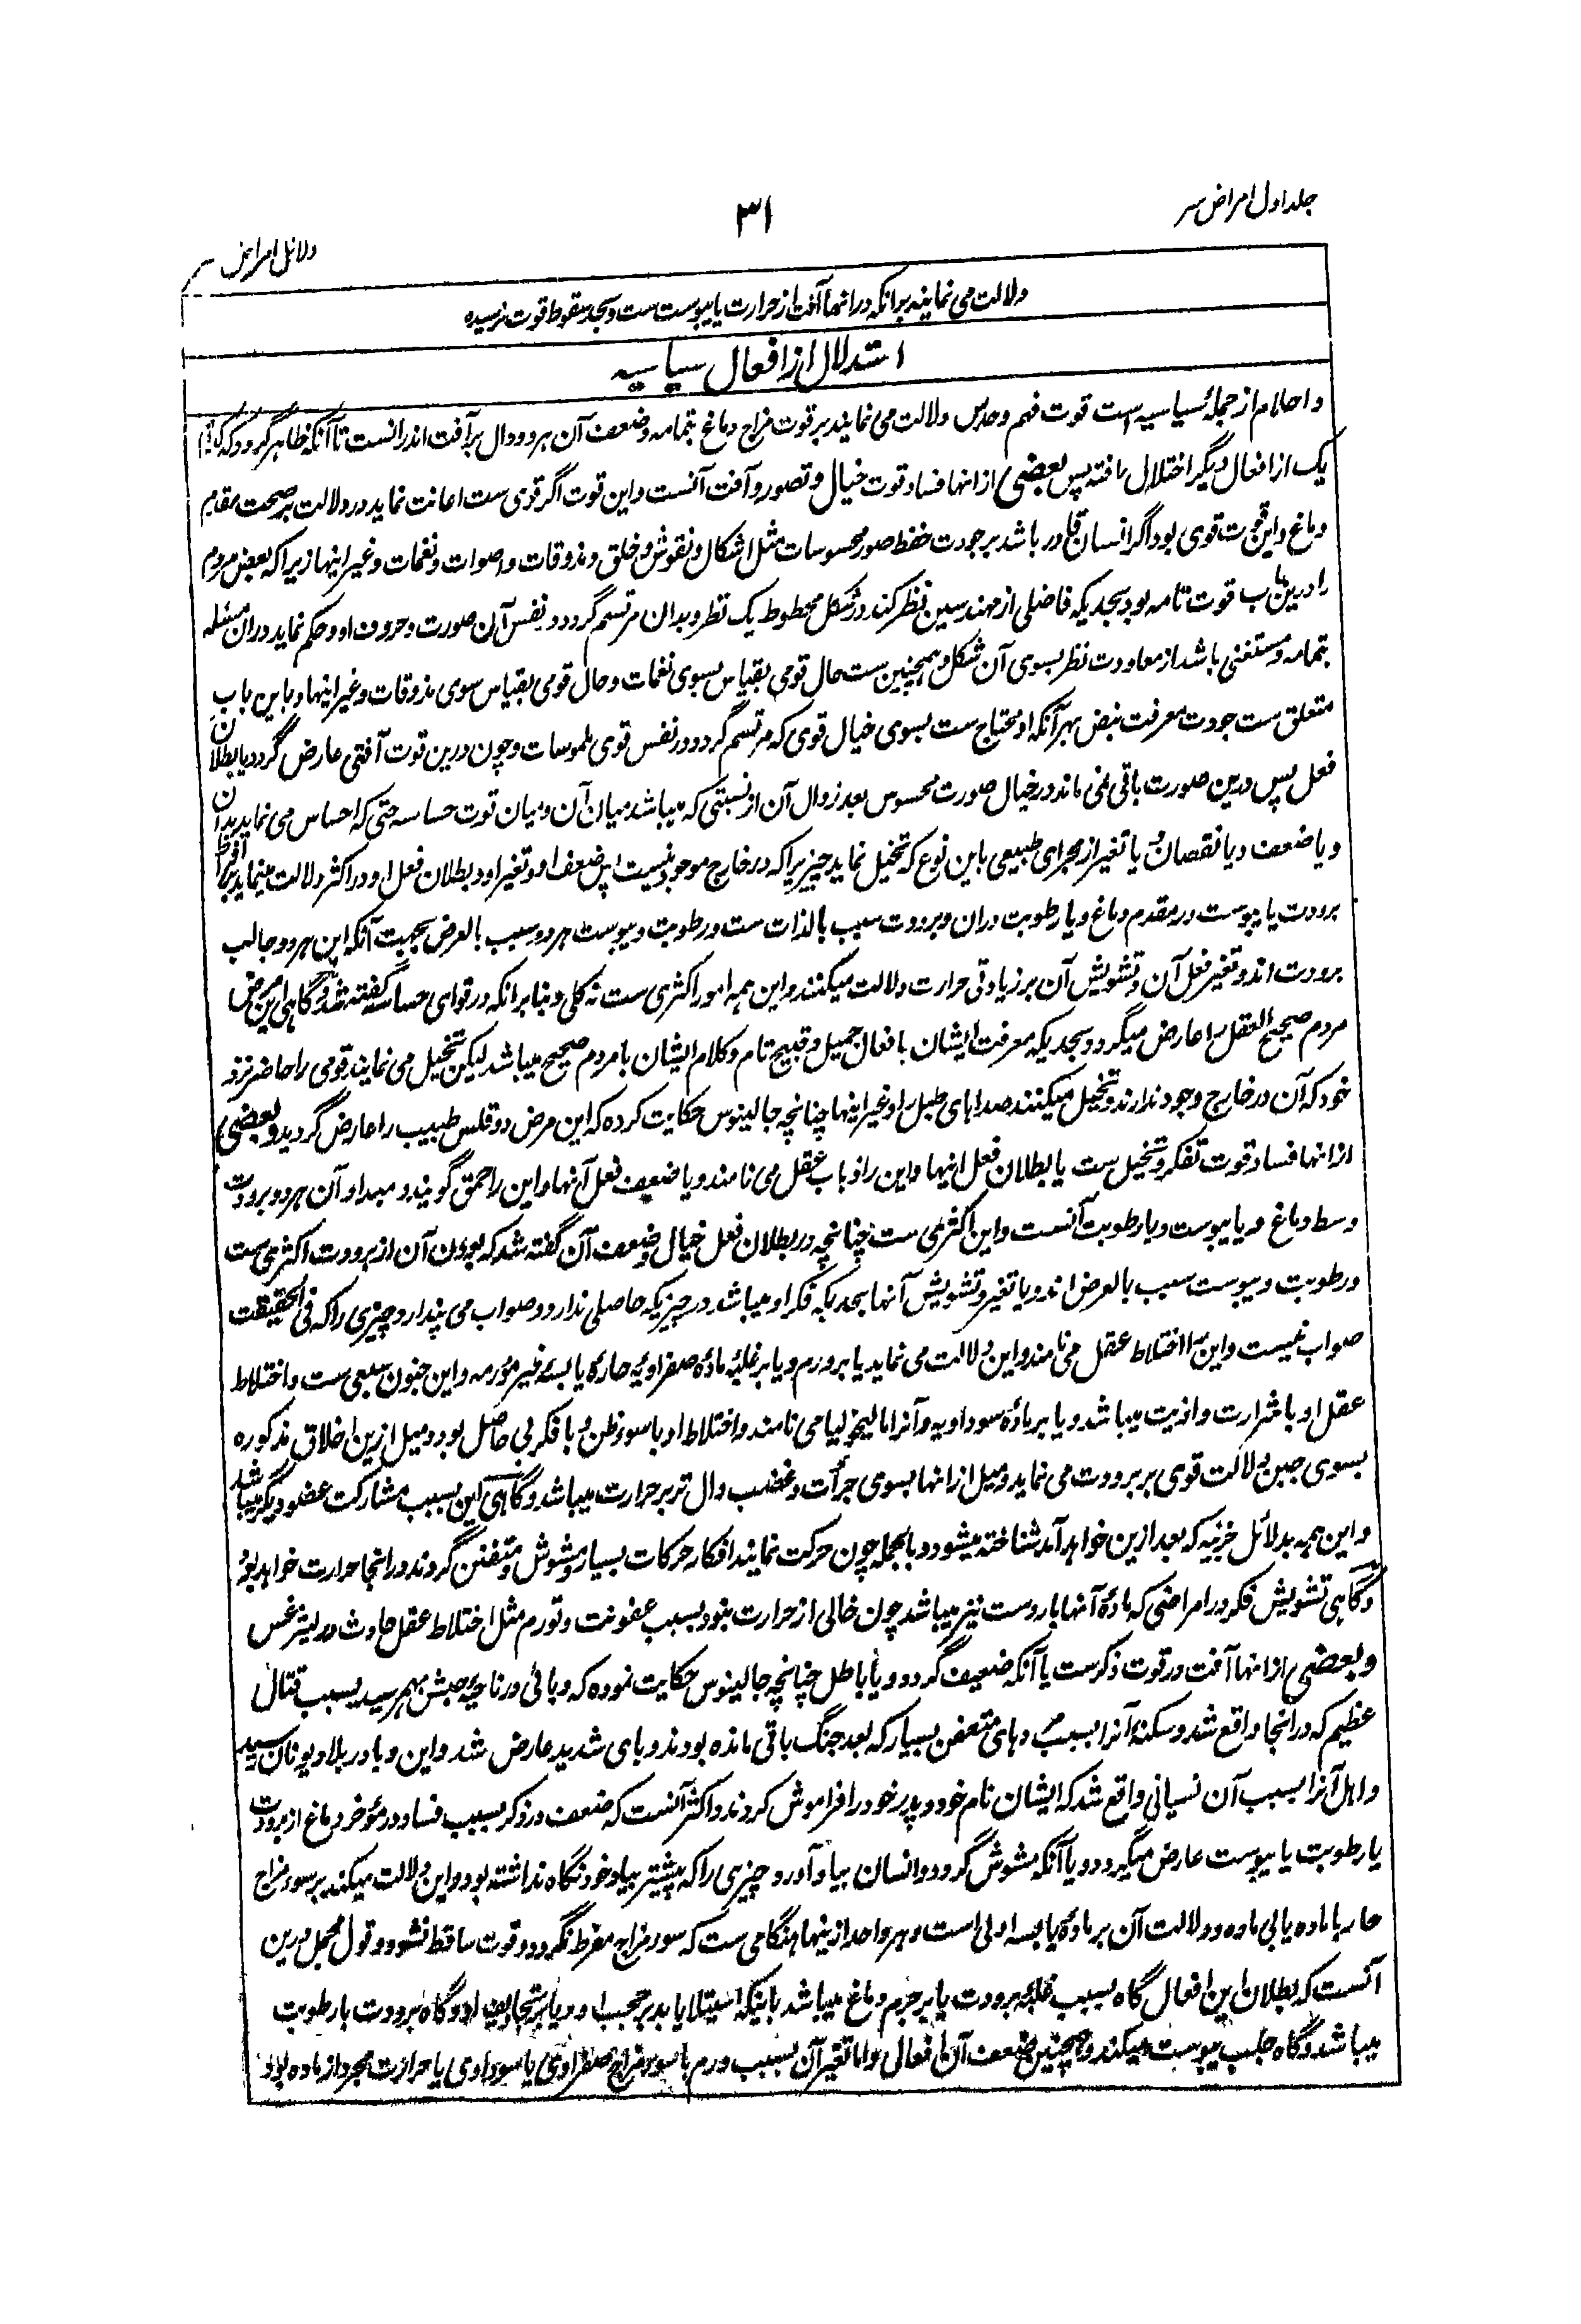 جلد اول امراض سر
۳۱
دلائل امراض سر
دلالت می نمایند برانکه درانها آفت از حرارت یا یبوست ست و بحد سقوط قوت نرسیده
استدلال از افعال سیاسیه
و احلام از جملهٔ سیاسیه است قوت فهم و حدس دلالت می نمایند بر قوت مزاج دماغ بتمامه و ضعف آن هر دو دال بر آفت اندرانست تا آنکه ظاهر گردد که
یک از افعال دیگر اختلال یافته پس بعضی از انها فساد قوت خیال و تصور و آفت آنست و این قوت اگر قوی ست اعانت نماید در دلالت بر صحت مقدم
دماغ و این قوت قوی بود اگر انسان قادر باشد بر جودت حفظ صور محسوسات مثل اشکال و نقوش و خلق و مذوقات و اصوات و نغمات و غیر اینها زیرا که بعض مردم
را درین باب قوت تامه بود بحدیکه فاضلی از مهندسین نظر کند در شکل مخطوط یک نظر و بدان مرتسم گردد در نفس آن صورت و حروف او و حکم نماید دران مسئله
بتمامه و مستغنی باشد از معاودت نظر بسوی آن شکل و همچنین ست حال قومی بقیاس بسوی نغمات و حال قومی بقیاس سوی مذوقات و غیر اینها و باین باب
متعلق ست جودت معرفت نبض بهر آنکه او محتاج ست بسوی خیال قوی که مرتسم گردد در نفس قوی ملموسات و چون درین قوت آفتی عارض گردد یا بطلان
فعل پس درین صورت باقی نمی ماند در خیال صورت محسوس بعد زوال آن از نسبتی که میباشد میان آن و میان قوت حساسه حتی که احساس می نماید بدان
و یا ضعف و یا نقصان و یا تغیر از مجرای طبیعی باین نوع که تخیل نماید چیزیرا که در خارج موجود نیست پس ضعف او و تغیر او و بطلان فعل او در اکثر دلالت مینماید بر افراط
برودت یا یبوست در مقدم دماغ و یا رطوبت دران و برودت سبب بالذات ست و رطوبت و یبوست هر دو سبب بالعرض بجهت آنکه این هر دو جالب
برودت اند و تغیر فعل آن و تشویش آن بر زیادتی حرارت دلالت میکنند و این همه امور اکثری ست نه کلی و بنا برانکه در قوای حساسه گفته شد و گاهی این مرض
مردم صحیح العقل را عارض میگردد بحدیکه معرفت ایشان با فعال جمیل و قبیح تام و کلام ایشان با مردم صحیح میباشد لیکن تخیل می نمایند قومی را حاضر نزد
خود که آن در خارج وجود ندارند و تخیل میکنند صداهای طبل را و غیر اینها چنانچه جالینوس حکایت کرده که این مرض دوقلس طبیب را عارض گردید و بعضی
از انها فساد قوت تفکر و تخیل ست یا بطلان فعل اینها و این را ذهاب عقل می نامند و یا ضعف فعل آنها و این را حمق گویند و مبداء آن هر دو برودت
وسط دماغ و یا یبوست و یا رطوبت آنست و این اکثری ست چنانچه در بطلان فعل خیال و ضعف آن گفته شد که بودن آن از برودت اکثری ست
و رطوبت و یبوست سبب بالعرض اند و یا تغیر و تشویش آنها بحدیکه فکر او میباشد در چیزیکه حاصلی ندارد و صواب می پندارد چیزی را که فی الحقیقت
صواب نیست و این را اختلاط عقل می نامند و این دلالت می نماید یا بر ورم و یا بر غلبهٔ مادهٔ صفراویه حاره یابسه غیر مورمه و این جنون سبعی ست و اختلاط
عقل او با شرارت و اذیت میباشد و یا بر مادهٔ سوداویه و آنرا مالیخولیا می نامند و اختلاط او با سوء ظن و با فکر بی حاصل بود و میل ازین اخلاق مذکوره
بسوی جبن دلالت قوی بر برودت می نماید و میل از انها بسوی جرأت و غضب دال تر بر حرارت میباشد و گاهی این بسبب مشارکت عضو دیگر میباشد
و این همه بدلائل جزئیه که بعد ازین خواهد آمد شناخته میشود و بالجمله چون حرکت نمایند افکار حرکات بسیار و مشوش و متفنن گردند درانجا حرارت خواهد بود
و گاهی تشویش فکر در امراضی که مادهٔ آنها بارد ست نیز میباشد چون خالی از حرارت نبود بسبب عفونت و تورم مثل اختلاط عقل حادث در لیثرغس
و بعضی از انها آفت در قوت ذکر ست یا آنکه ضعیف گردد و یا باطل چنانچه جالینوس حکایت نموده که وبائی در ناحیهٔ حبش بهم رسید بسبب قتال
عظیم که درانجا واقع شد و سکنهٔ آنرا بسبب مرده های متعفن بسیار که بعد جنگ باقی مانده بودند وبای شدید عارض شد و این وبا در بلاد یونان رسید
و اهل آنرا بسبب آن نسیانی واقع شد که ایشان نام خود و پدر خود را فراموش کردند و اکثر آنست که ضعف در ذکر بسبب فساد در مؤخر دماغ از برودت
یا رطوبت یا یبوست عارض میگردد و یا آنکه مشوش گردد و انسان بیاد آورد چیزی را که پیشتر بیاد خود نگاه نداشته بود و این دلالت میکند بر سوء مزاج
حار با ماده یا بی ماده و دلالت آن بر مادهٔ یابسه اولی است و هر واحد ازینها هنگامی ست که سوء مزاج مفرط نگردد و قوت ساقط نشود و قول مجمل درین
آنست که بطلان این افعال گاه بسبب غلبهٔ برودت یا بر جرم دماغ میباشد باینکه استیلا یابد بر حجب او و یا بر تجاویف او و گاه برودت با رطوبت
میباشد و گاه جلب یبوست میکند و همچنین ضعف آن افعال و اما تغیر آن بسبب ورم یا سوء مزاج صفراوی یا سوداوی یا حرارت مجرد از ماده بود